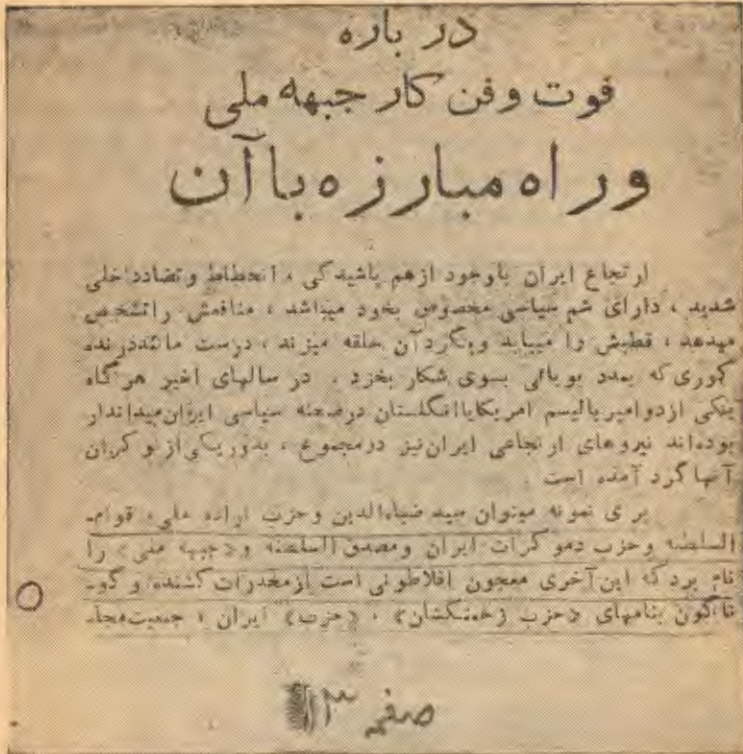 در باره
فوت و فن کار جبهه ملی
و راه مبارزه با آن
ارتجاع ایران باوجود ازهم پاشیدگی ، انحطاط وتضادداخلی
شدید ، دارای شم سیاسی مخصوص بخود میباشد ، منافعش راتشخص
میدهد ، قطبش را مییابد وبگردآن حلقه میزند ، درست ماننددرنده
کوری‌که بمدد بویائی بسوی شکار بخزد . در سالهای اخیر هرگاه
یکی ازدوامپریالیسم امریکایاانگلستان درصحنه سیاسی ایران‌میداندار
بوده‌اند نیروهای ارتجاعی ایران‌نیز درمجموع ، بدوریکی‌ازنوکران
آنهاگرد آمده است .
برای نمونه میتوان سید ضیاءالدین وحزب اراده ملی، قوام‌ـ
السلطنه وحزب دموکرات ایران ومصدق‌السلطنه و«جبهه ملی» را
نام بردکه این‌آخری معجون افلاطونی است ازمخدرات کشنده وگو‌ـ
ناگون بنامهای «حزب زحمتکشان» ، «حزب» ایران ، جمعیت‌مجا‌ـ
صفحه ۳